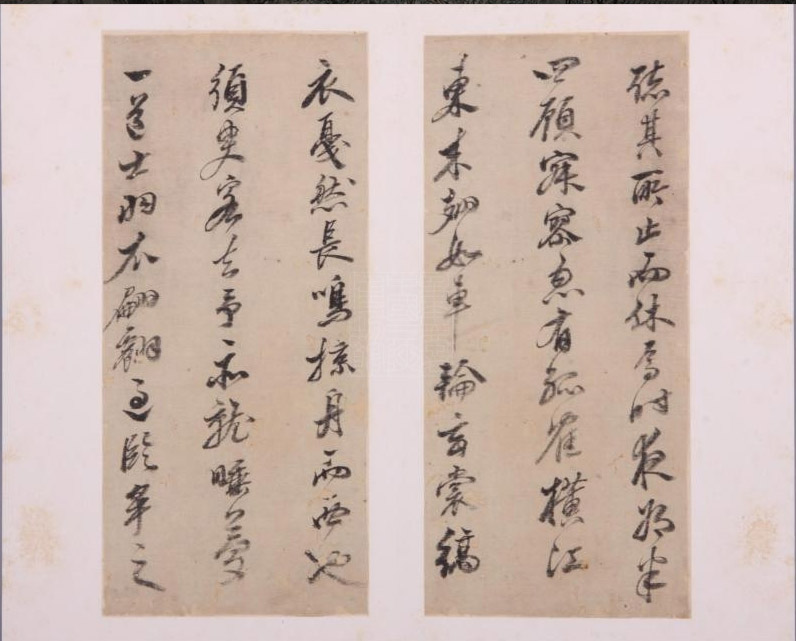 聽其所止而休焉時夜將半
四顧寂寥忽有孤隺橫江
東來翅如車輪玄裳縞
衣戛然長鳴掠舟而西也
須臾客去予亦就睡夢
一道士羽衣翩翻過臨皋之